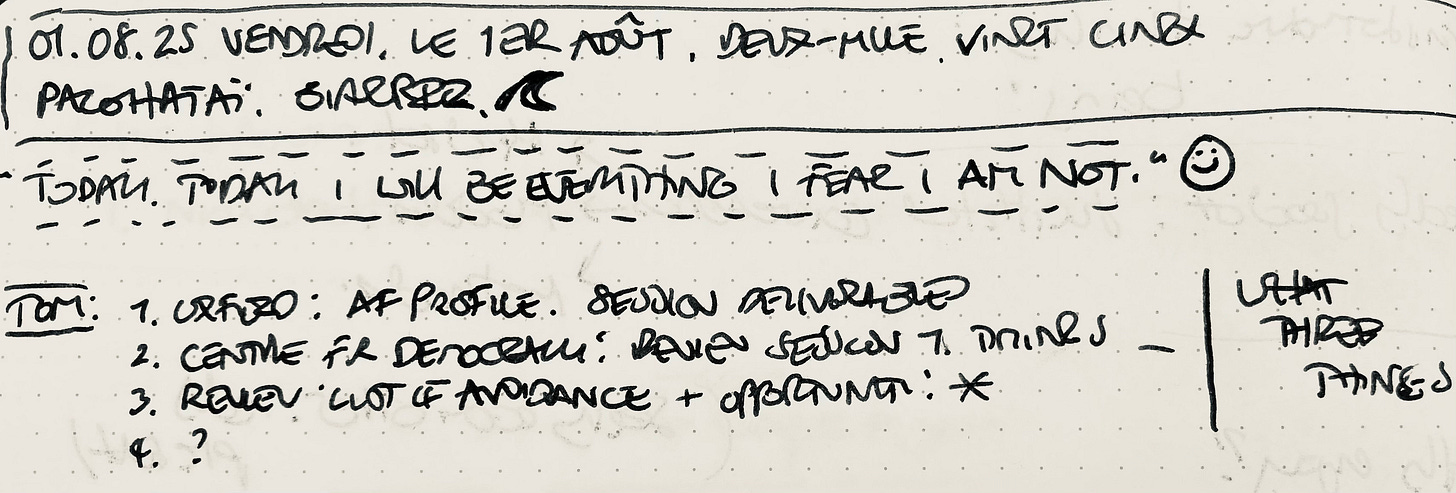 01.08.25 VENDREDI. LE 1ER AOÛT, DEUX-MILLE VINGT CINQ
TODAY. TODAY I WILL BE EVERYTHING I FEAR I AM NOT."
TOM: 1. OXFORD: AF PROFILE. SESSION DELIVERABLES
2. CENTRE FR DEMOCRACY: REVIEW SESSION 7. TIMINGS —
3. REVIEW 'LIST OF AVOIDANCE + OPPORTUNITY: *
4. ?
WHAT
THREE
THINGS